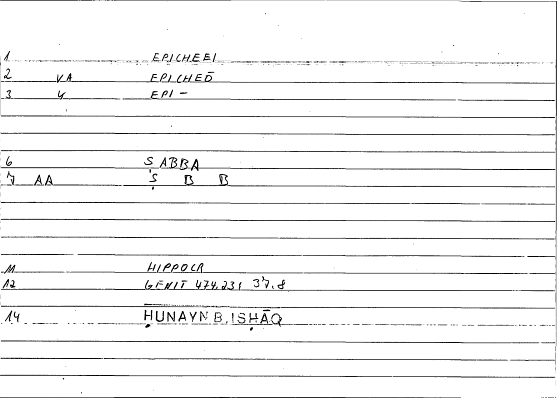 1 EPICHEEI
2 VA EPICHEŌ
3 4 EPI -
6 ṢABBA
7 AA Ṣ B B
11 HIPPOCR
12 GENIT 474.231 37.8
14 ḤUNAYN B. ISḤĀQ